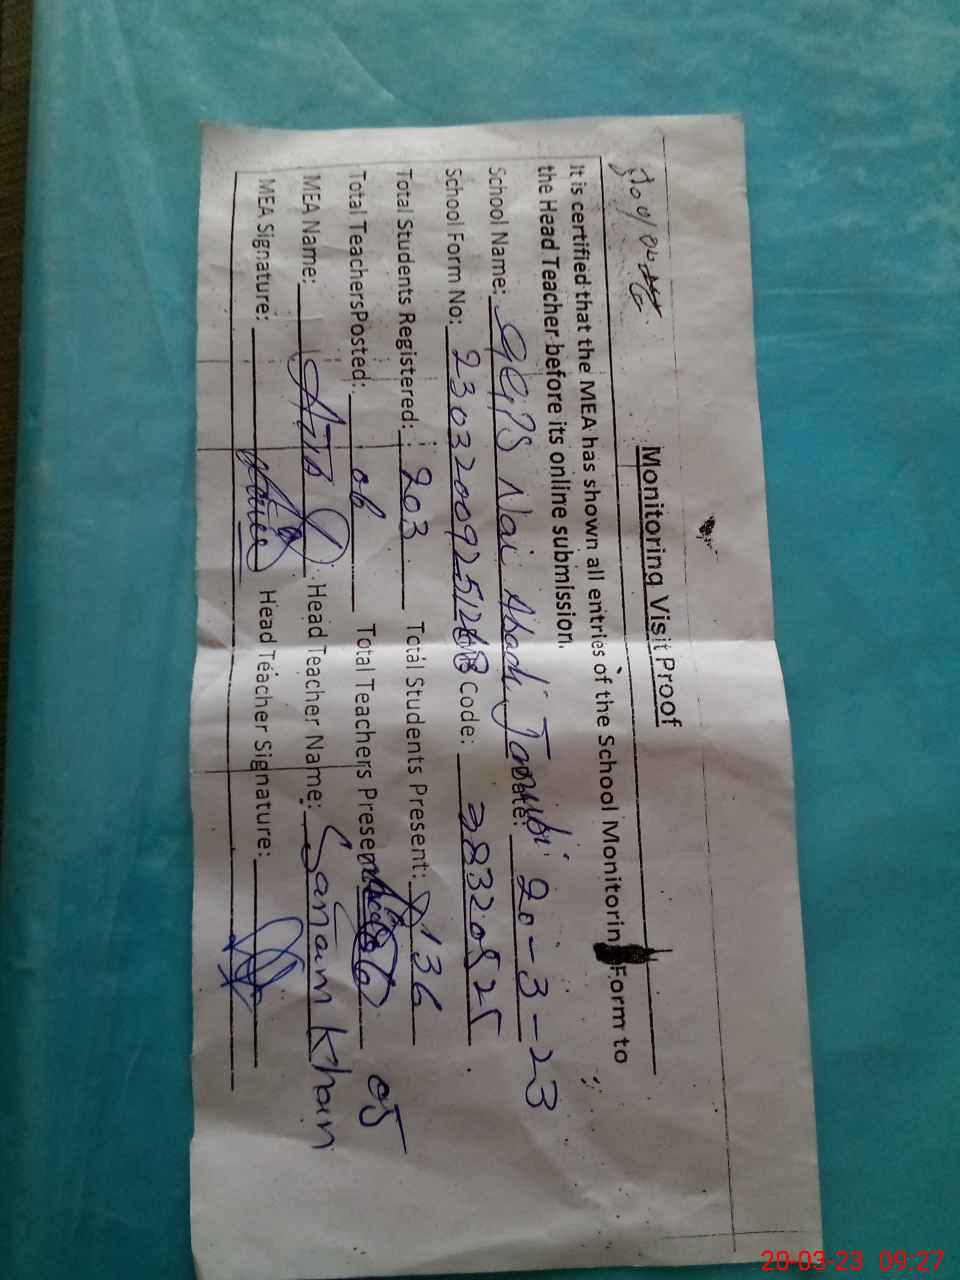 Monitoring Visit Proof
It is certified that the MEA has shown all entries of the School Monitorin Form to
the Head Teacher before its online submission.
School Name: GGPS Nai Abadi Date: 20-3-23
School Form No: Code: 38320525
Total Students Registered: 203 Total Students Present: 136
Total TeachersPosted: 06 Total Teachers Present 05
MEA Name: Head Teacher Name: Sanam Khan
MEA Signature: Head Teacher Signature:
20-03-23 09:27